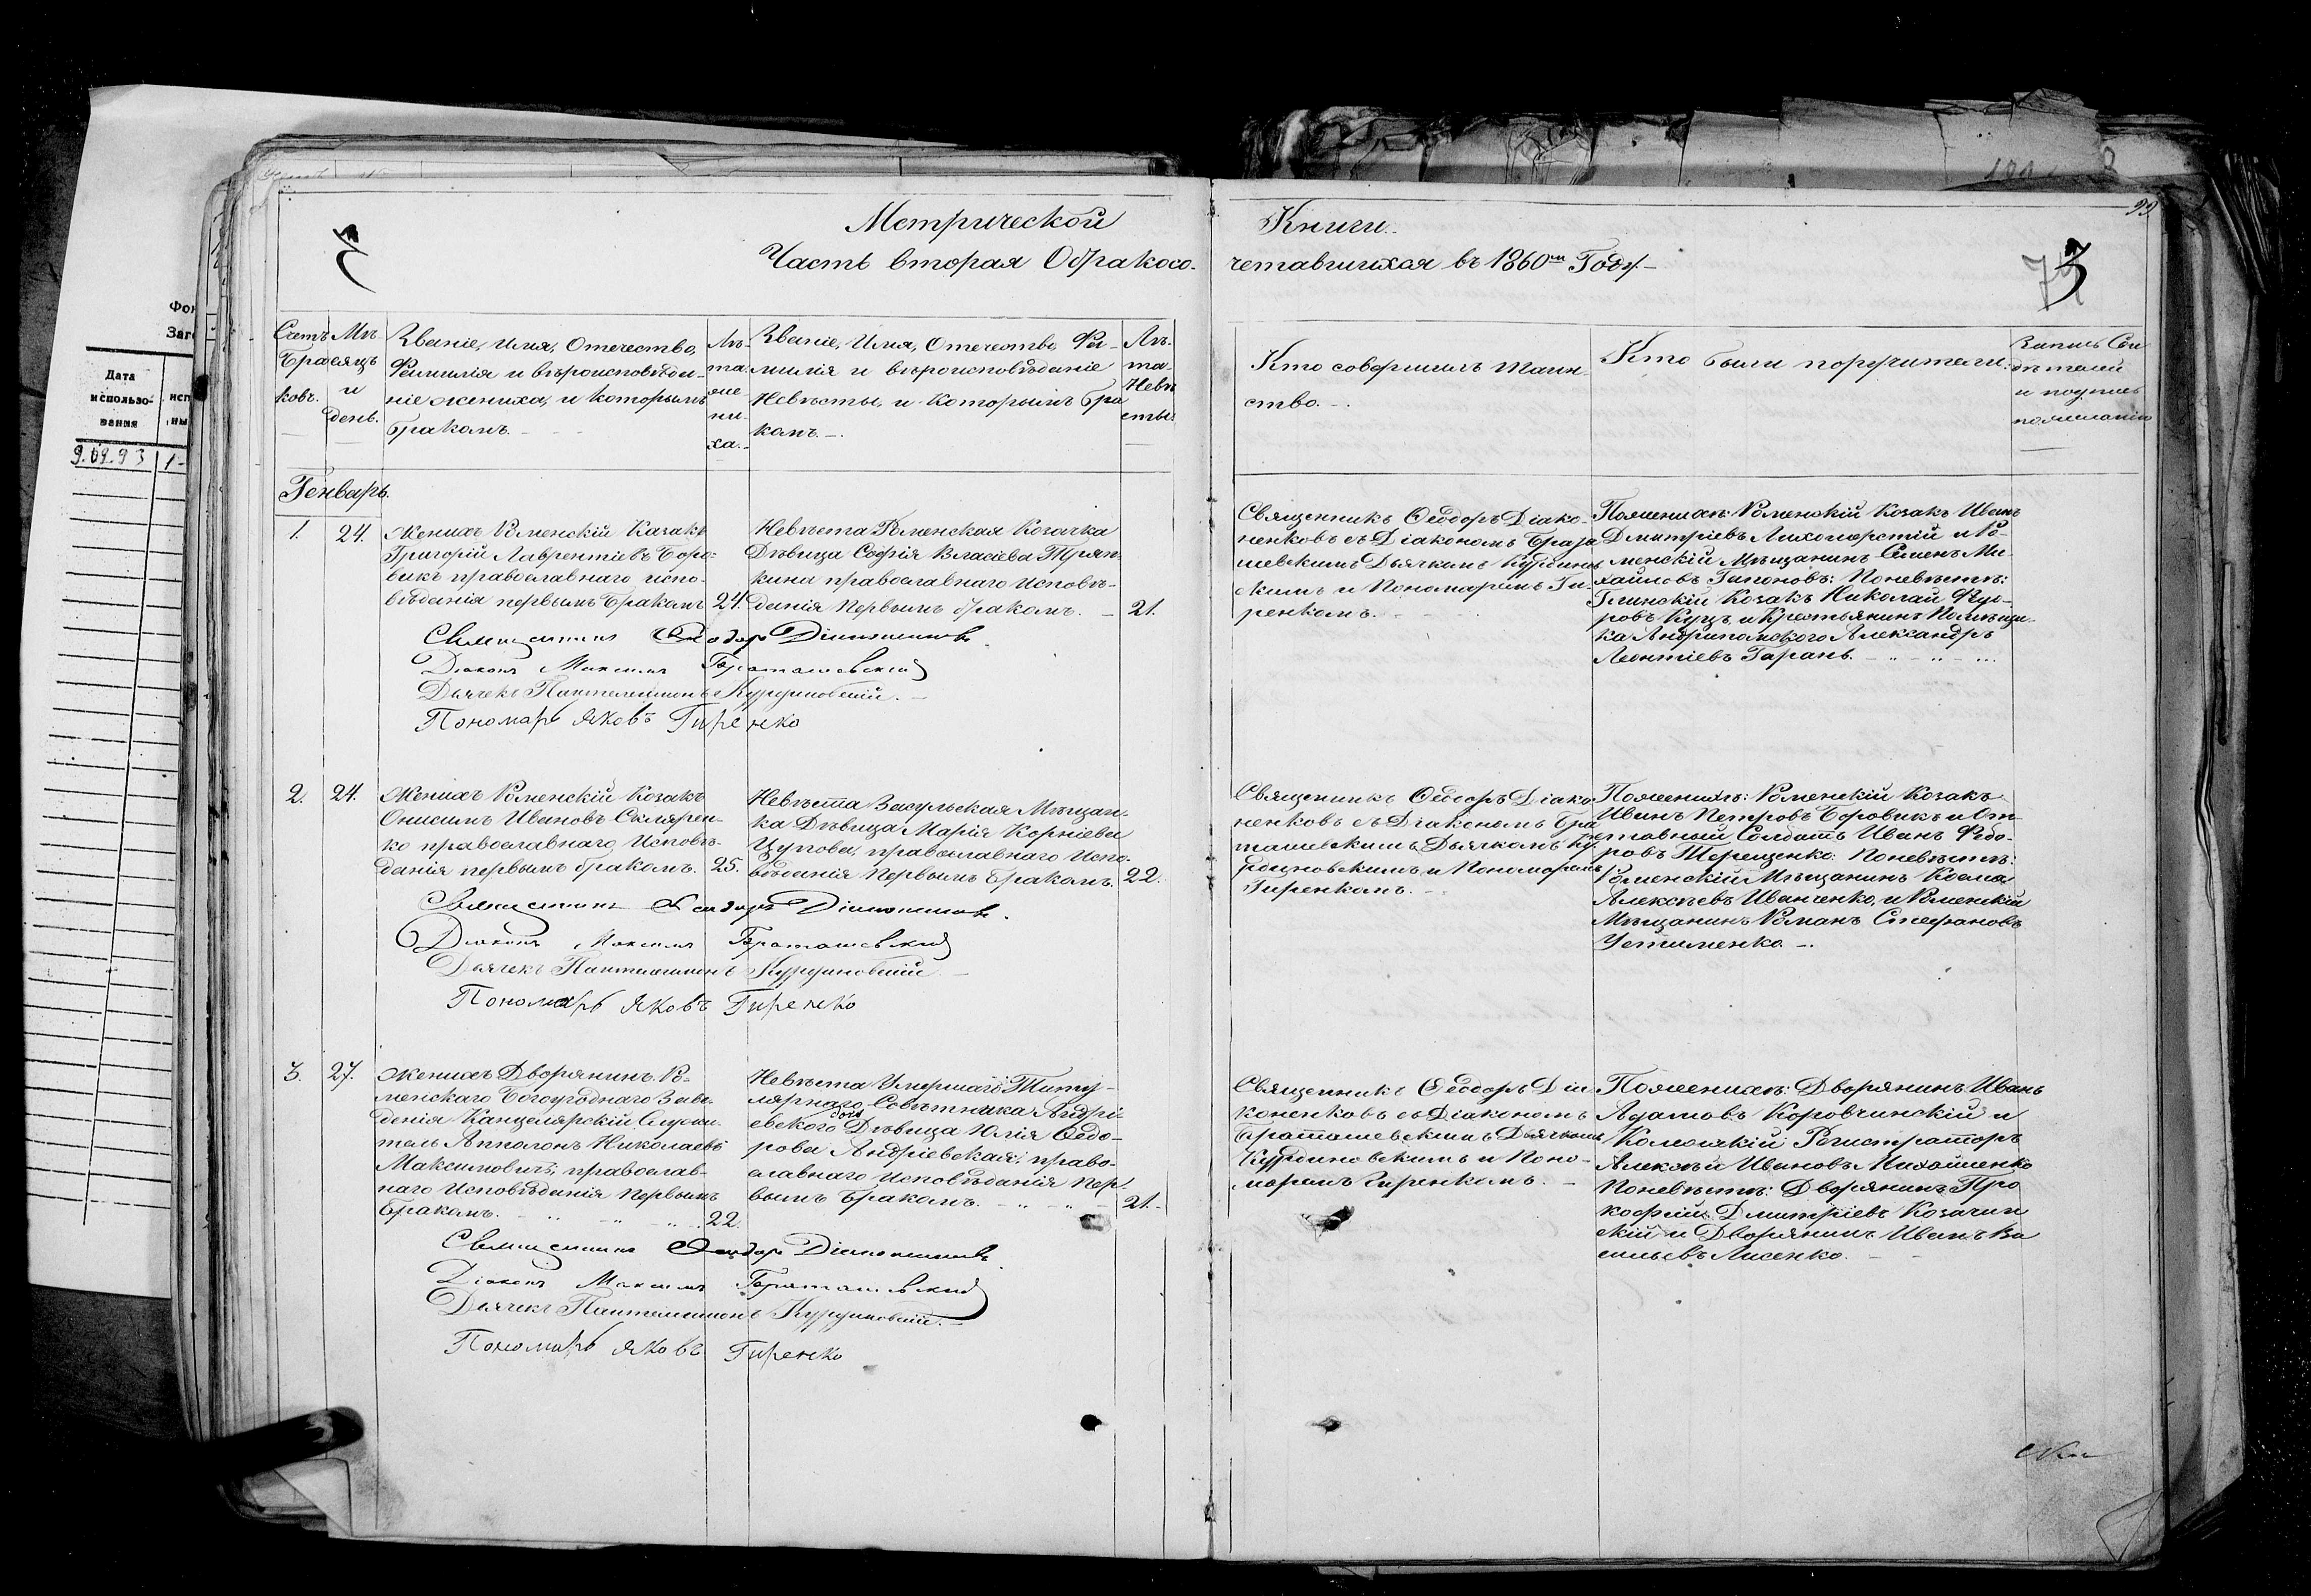 Фон
Заго
Дата
использо-
вания
исп
ны
9.09.93
1-
99
3
Метрической
Книги.
Часть вторая О бракосо-
четавшихся въ 1860мъ Году.
Счетъ
Бра
ковъ.
Мѣ-
сяцъ
и
день.
Званіе, Имя, Отечество,
Фамилія и вѣроисповѣда-
ніе жениха, и которымъ
бракомъ.
Лѣ-
та
же-
ни-
ха.
Званіе, Имя, Отечество, Фа-
милія и вѣроисповѣданіе
Невѣсты, и которымъ бра
комъ.
Лѣ-
та
Невѣ
сты.
Кто совершилъ таин-
ство.
Кто были поручители.
Запись Сви
дѣтелей
и подпись
по желанію
Генварь.
1.
24.
Женихъ Роменскій Казакъ
Григорій Лаврентіевъ Боро-
викъ православнаго испо-
вѣданія первымъ бракомъ
24.
Невѣста Роменская Козачка
Дѣвица Софія Власіева Тряп-
кина православнаго Исповѣ-
данія Первымъ бракомъ.
21.
Священникъ Ѳеодоръ Діако-
ненковъ съ Діакономъ Брата
шевскимъ Дьячкомъ Курдинов
скимъ и Пономаремъ Ги-
ренкомъ.
По женихѣ: Роменскій Козакъ Иванъ
Дмитріевъ Лихошерстій и Ро-
менскій Мѣщанинъ Семенъ Ми-
хайловъ Гапоновъ: По невѣстѣ:
Глинскій Козакъ Николай Фудо-
ровъ Куцъ и Крестьянинъ Помѣщи-
ка Андріполского Александръ
Леонтіевъ Гарань.
Священникъ Ѳеодоръ Діаконенковъ.
Діаконъ Максимъ Браташевскій
Дьячекъ Пантелеимонъ Курдиновскій.
Пономарь Яковъ Гиренко
2.
24.
Женихъ Роменскій Козакъ
Онисимъ Ивановъ Скляренко
ко православнаго Исповѣ-
данія первымъ бракомъ.
25.
Невѣста Засульская Мѣщан-
ка Дѣвица Марія Корніева
Цупова, православнаго Испо-
вѣданія Первымъ бракомъ.
22.
Священникъ Ѳеодоръ Діако
ненковъ съ Діакономъ Бра
ташевскимъ, Дьячкомъ Ку
рдиновскимъ, и Пономаремъ
Гиренкомъ.
По женихѣ: Роменскій Козакъ
Иванъ Петровъ Боровикъ и От
ставный Солдатъ Иванъ Федо-
ровъ Терещенко: По невѣстѣ:
Роменскій Мѣщанинъ Косма
Алексѣевъ Иванченко, и Роменскій
Мѣщанинъ Романъ Стефановъ
Устименко.
Священникъ Ѳеодоръ Діаконенковъ.
Діаконъ Максимъ Браташевскій
Дьячекъ Пантелеимонъ Курдиновскій.
Пономарь Яковъ Гиренко
3.
27.
Женихъ Дворянинъ Ро-
менскаго Богоугоднаго Заве-
денія Канцелярскій Служи-
тель Апполонъ Николаевъ
Максимовичъ, православ-
наго Исповѣданія Первымъ
бракомъ.
22.
Невѣста Умершаго Титу-
лярнаго Совѣтника Андрі-
евского дочь Дѣвица Юлія Ѳедо-
рова Андріевская, право-
славнаго Исповѣданія Пер-
вымъ бракомъ.
21.
Священникъ Ѳеодоръ Діа
коненковъ съ Діакономъ
Браташевскимъ Дьячкомъ
Курдиновскимъ и Поно-
маремъ Гиренкомъ.
По женихѣ: Дворянинъ Иванъ
Адамовъ Коровчинскій и
Колежскій Регистраторъ
Алексѣй Ивановъ Михайленко
По невѣстѣ: Дворянинъ Про
кофій Дмитріевъ Козачин
скій и Дворянинъ Иванъ Ва
сильевъ Лисенко.
Священникъ Ѳеодоръ Діаконенковъ.
Діаконъ Максимъ Браташевскій
Дьячекъ Пантелеимонъ Курдиновскій.
Пономарь Яковъ Гиренко